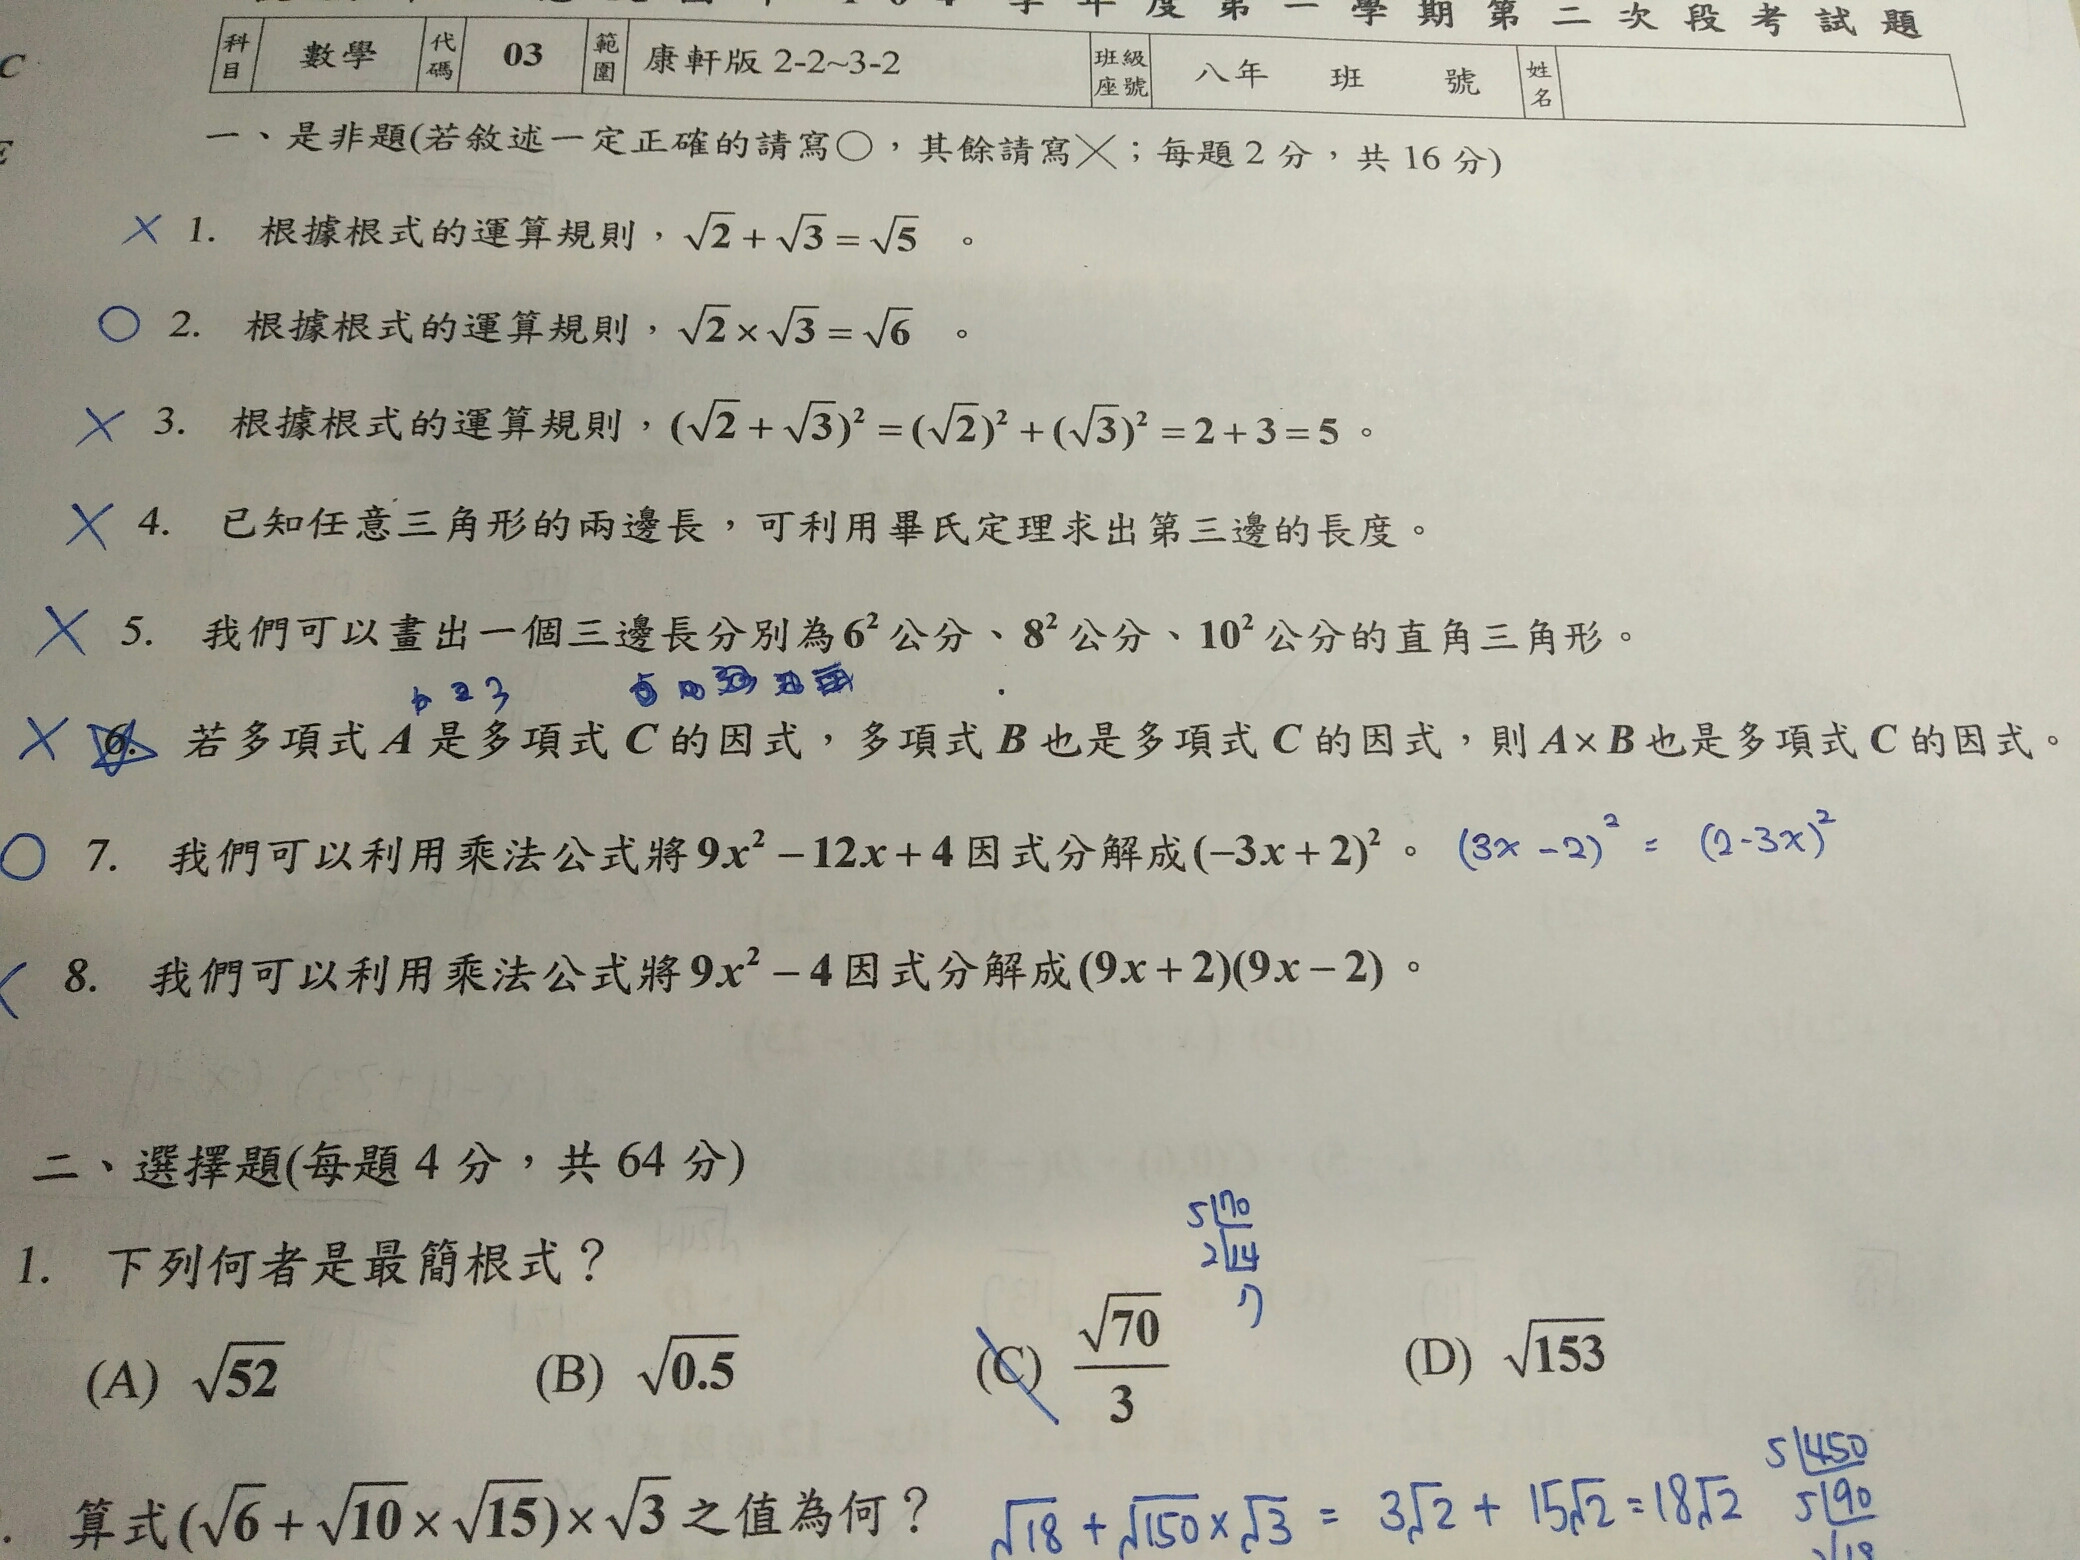 學年度第一學期第二次段考試題
科目 數學 代碼 03 範圍 康軒版 2-2~3-2 班級座號 八年 班 號 姓名
一、是非題(若敘述一定正確的請寫○，其餘請寫╳；每題 2 分，共 16 分)
× 1. 根據根式的運算規則，√2 + √3 = √5 。
○ 2. 根據根式的運算規則，√2 × √3 = √6 。
× 3. 根據根式的運算規則，(√2 + √3)² = (√2)² + (√3)² = 2 + 3 = 5 。
× 4. 已知任意三角形的兩邊長，可利用畢氏定理求出第三邊的長度。
× 5. 我們可以畫出一個三邊長分別為 6² 公分、8² 公分、10² 公分的直角三角形。
× 6. 若多項式 A 是多項式 C 的因式，多項式 B 也是多項式 C 的因式，則 A×B 也是多項式 C 的因式。
○ 7. 我們可以利用乘法公式將 9x² − 12x + 4 因式分解成 (−3x + 2)² 。 (3x − 2)² = (2-3x)²
8. 我們可以利用乘法公式將 9x² − 4 因式分解成 (9x + 2)(9x − 2) 。
二、選擇題(每題 4 分，共 64 分)
5 70
2 14
7
1. 下列何者是最簡根式？
(A) √52 (B) √0.5 (C) √70/3 (D) √153
5 450
5 90
算式 (√6 + √10 × √15) × √3 之值為何？ √18 + √150 × √3 = 3√2 + 15√2 = 18√2